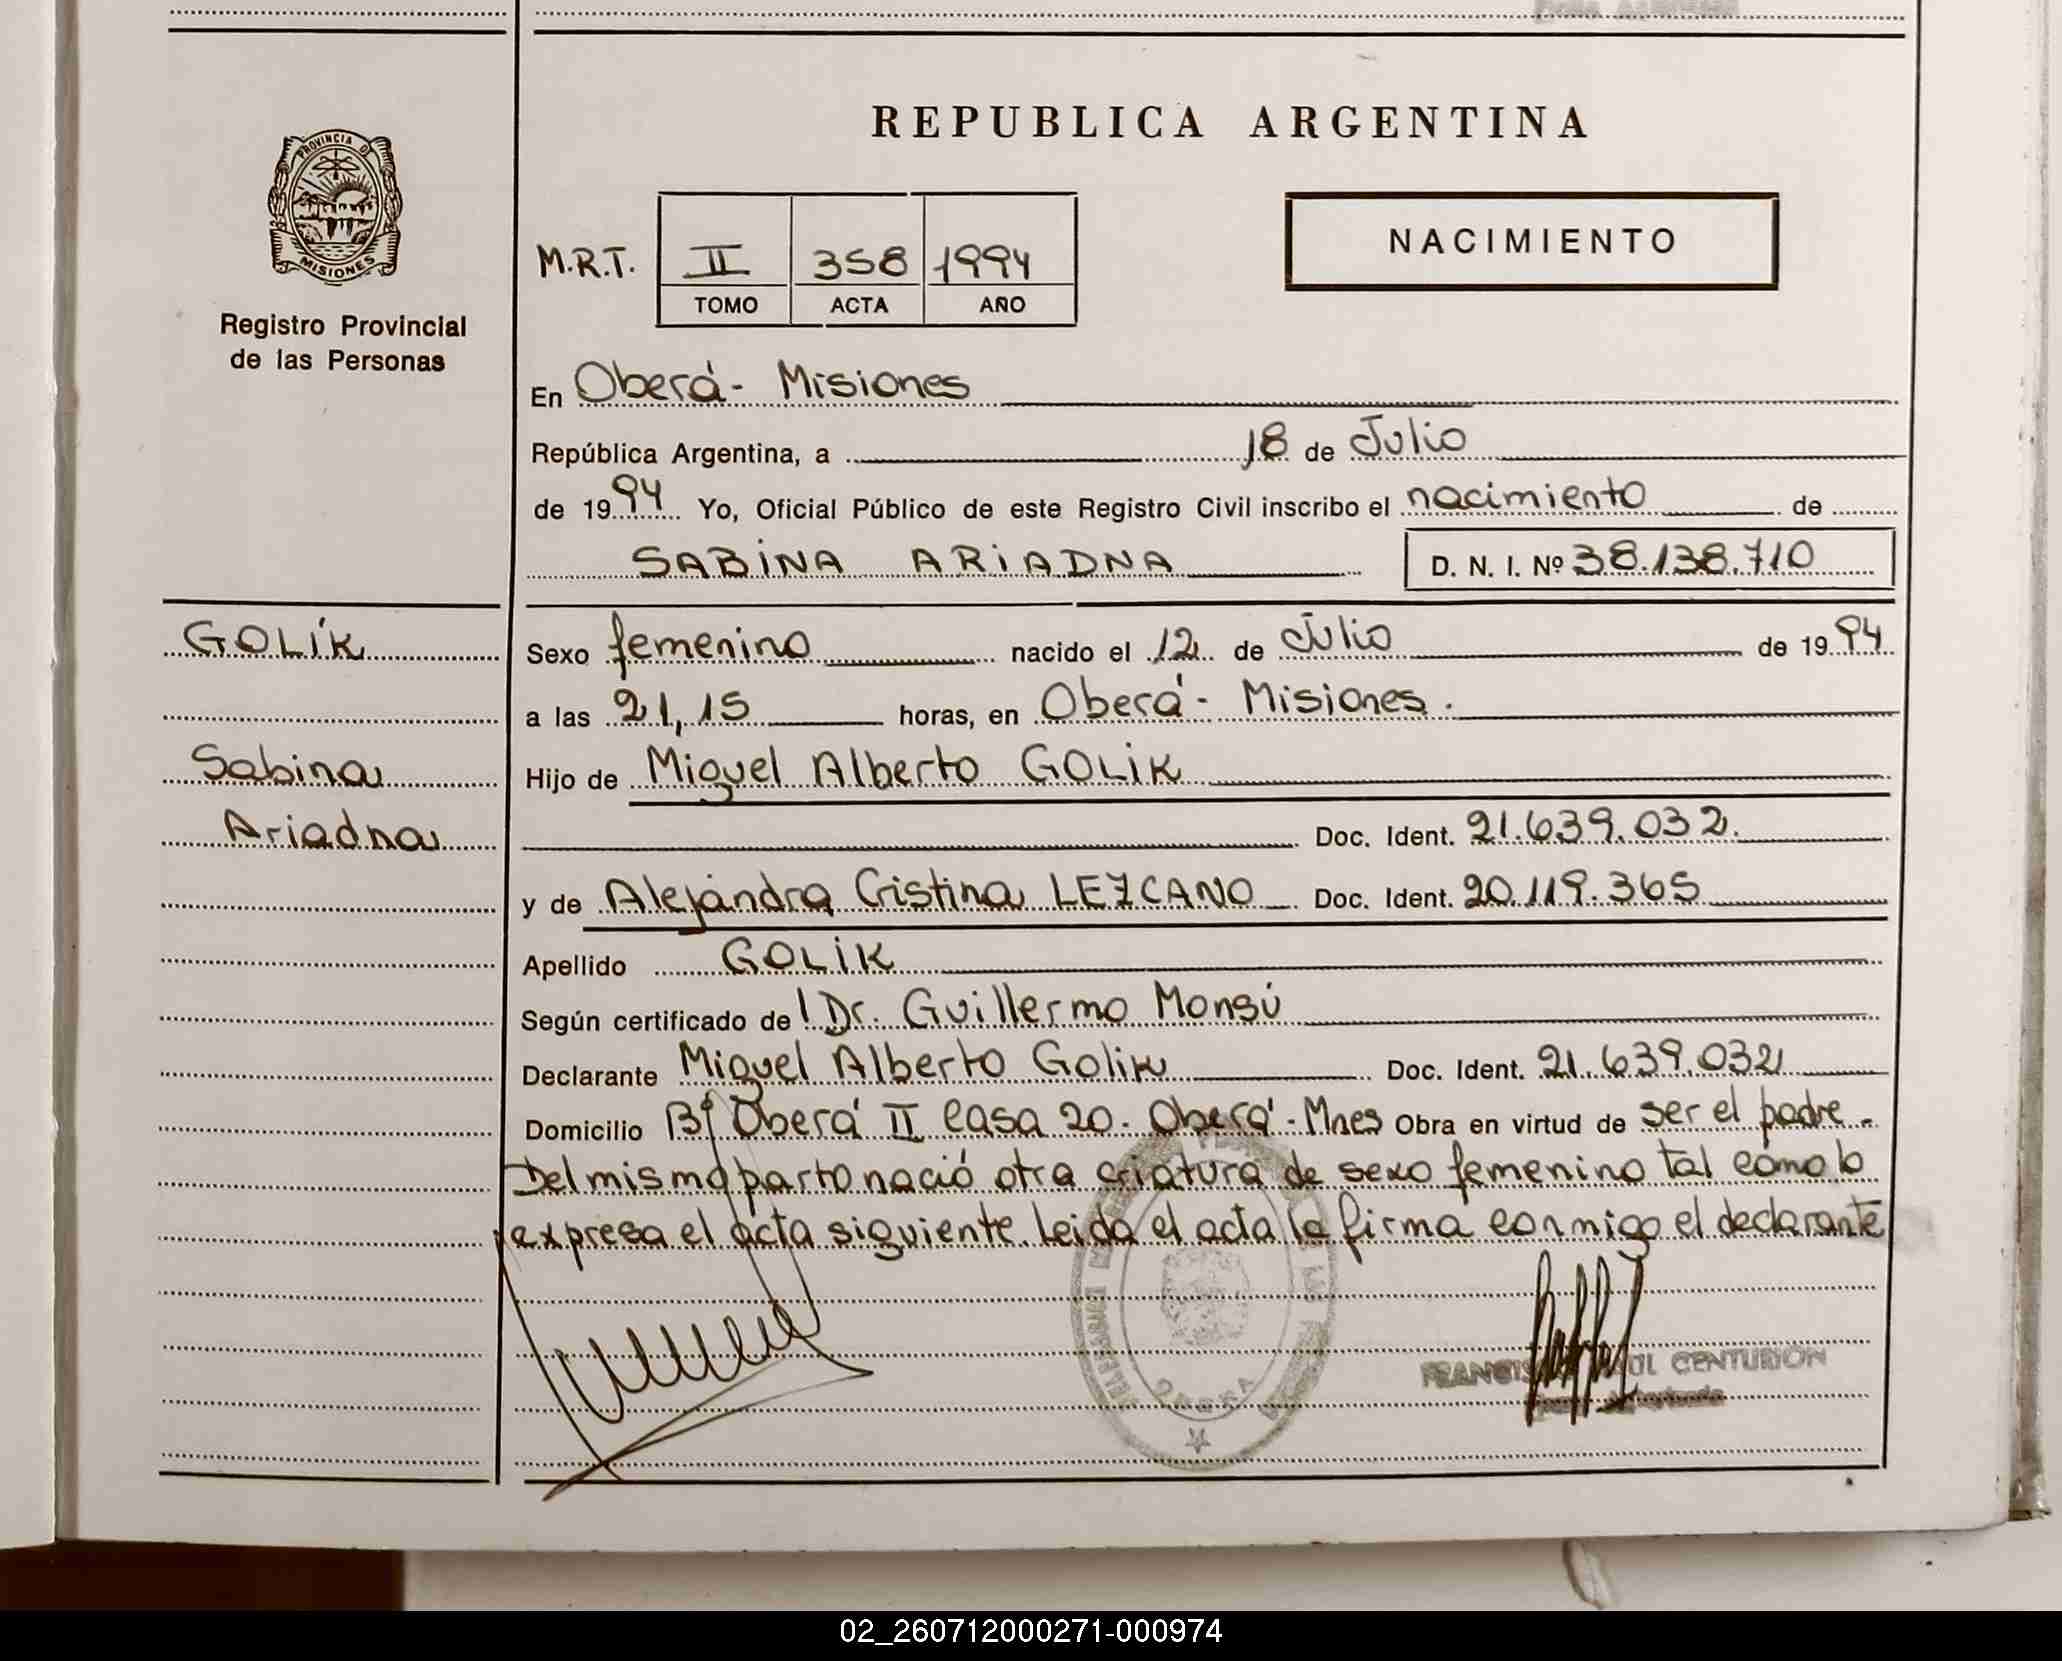 REPUBLICA ARGENTINA
PROVINCIA D
MISIONES
Registro Provincial
de las Personas
M.R.T.
II 358 1994
TOMO ACTA AÑO
NACIMIENTO
En Oberá - Misiones
República Argentina, a 18 de Julio
de 1994 Yo, Oficial Público de este Registro Civil inscribo el nacimiento de
SABINA ARIADNA D. N. I. Nº 38.138.710
GOLIK
Sabina
Ariadna
Sexo femenino nacido el 12 de Julio de 1994
a las 21,15 horas, en Oberá - Misiones.
Hijo de Miguel Alberto GOLIK
Doc. Ident. 21.639.032.
y de Alejandra Cristina LEZCANO Doc. Ident. 20.119.365
Apellido GOLIK
Según certificado del Dr. Guillermo Monsú
Declarante Miguel Alberto Golik Doc. Ident. 21.639.032
Domicilio Bº Oberá II Casa 20. Oberá - Mnes Obra en virtud de ser el padre.
Del mismo parto nació otra criatura de sexo femenino tal como lo
expresa el acta siguiente. Leida el acta la firma conmigo el declarante
OBERA
CENTURION
02_260712000271-000974